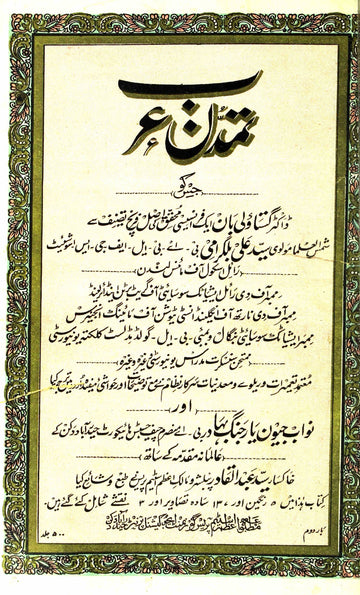 تمدن عرب
جس کو
ڈاکٹر گستاولی بان ایک فرانسیسی محقق اور فاضل مورخ کی تصنیف سے
شمس العلما مولوی سید علی بلگرامی بی-اے-بی-ایل-ایف-جی-ایس ایسوشیٹ
رائل سکول آف مائنس لندن
ممبر آف دی رائل ایشیاٹک سوسائٹی آف گریٹ برٹن اینڈ ائرلینڈ
ممبر آف دی نارتھ آف انگلینڈ انسٹی ٹیوشن آف مائننگ انجنیرس
ممبر ایشیاٹک سوسائٹی بنگال و بمبئی بی-ایل-گولڈ میڈلسٹ کلکتہ یونیورسٹی
ممتحن سنسکرت مدراس یونیورسٹی وغیرہ وغیرہ
معتمد تعمیرات و ریلوے و معدنیات سرکار نظام نے مع توضیحات اور حواشی مفیدہ ترجمہ کیا
اور
نواب جیون یار جنگ بہادر بی-اے چیف جسٹس ہائیکورٹ حیدرآباد دکن کے
عالمانہ مقدمہ کے ساتھ
خاکسار سید عبدالقادر نے طبع و شائع کیا
کتاب ہذا میں ۵ رنگین اور ۱۳۷ سادہ تصاویر اور ۴ نقشے شامل کئے گئے ہیں۔
بار دوم
۵۰۰ جلد